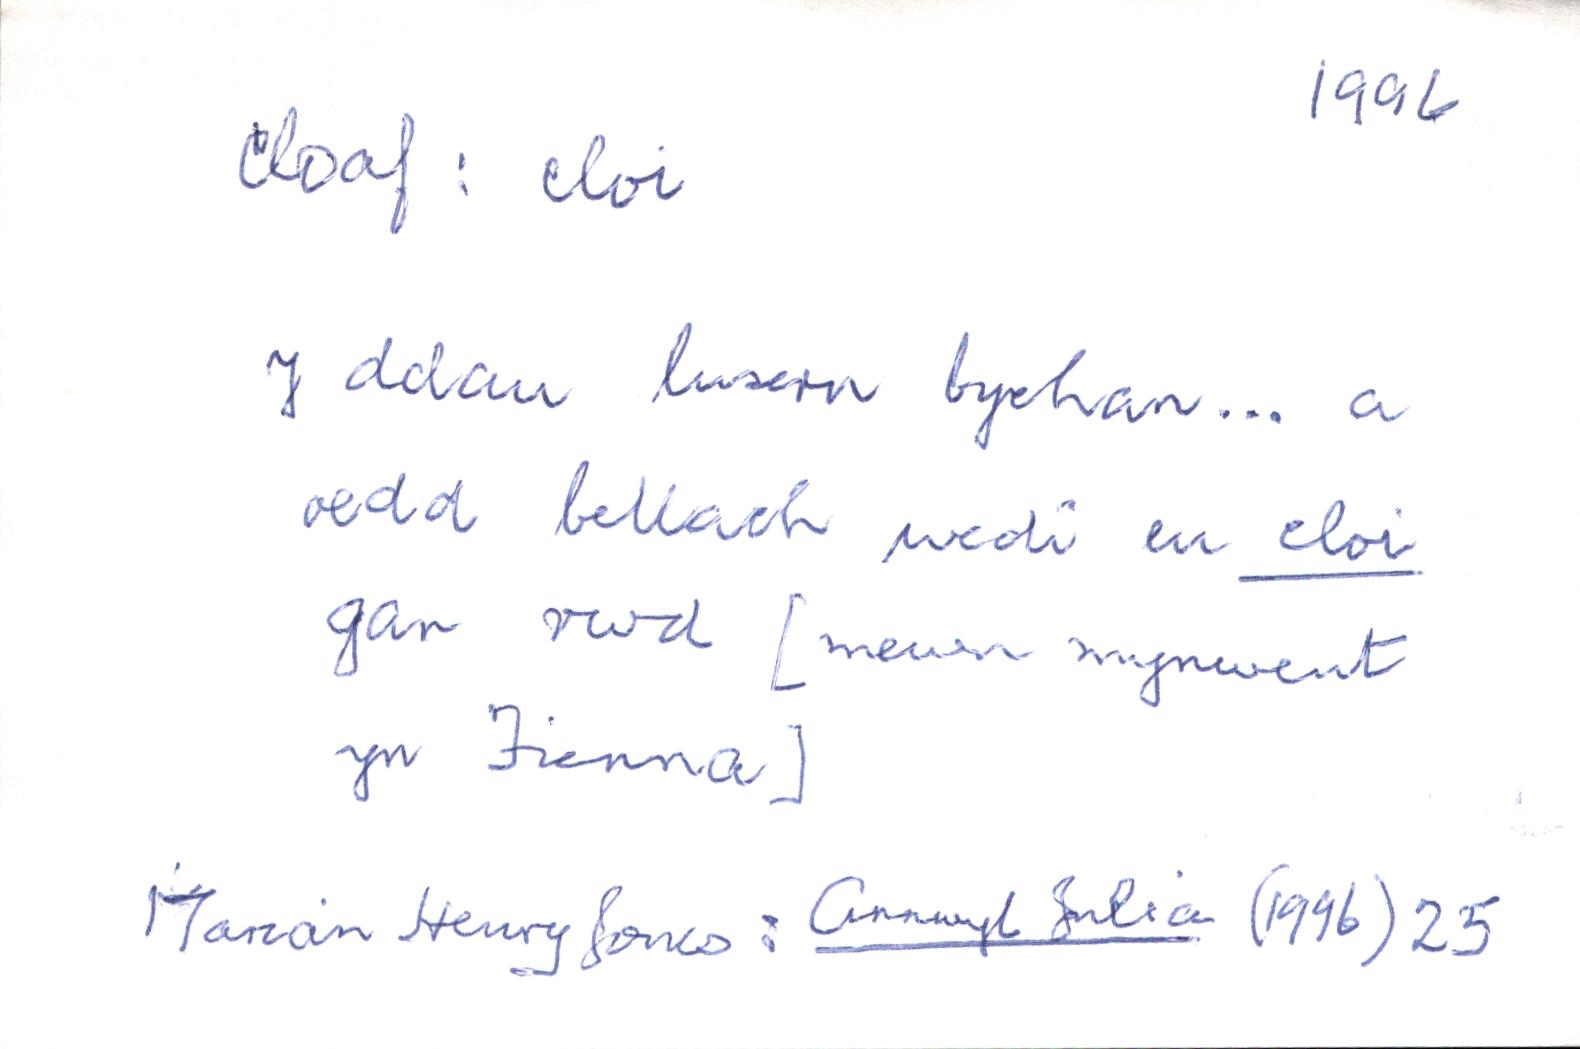 1996
cloaf : cloi
y ddau lusern bychan... a
oedd bellach wedi eu cloi
gan rwd [mewn mynwent
yn Fienna]
Marian Henry Jones : Annwyl Julia (1996) 25